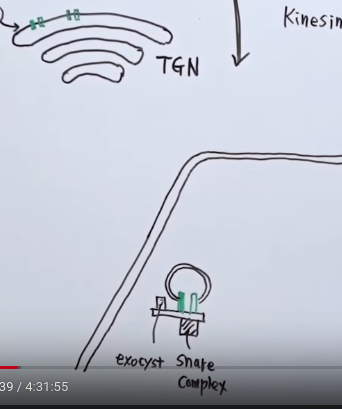 Kinesin
TGN
exocyst Snare
Complex
39 / 4:31:55